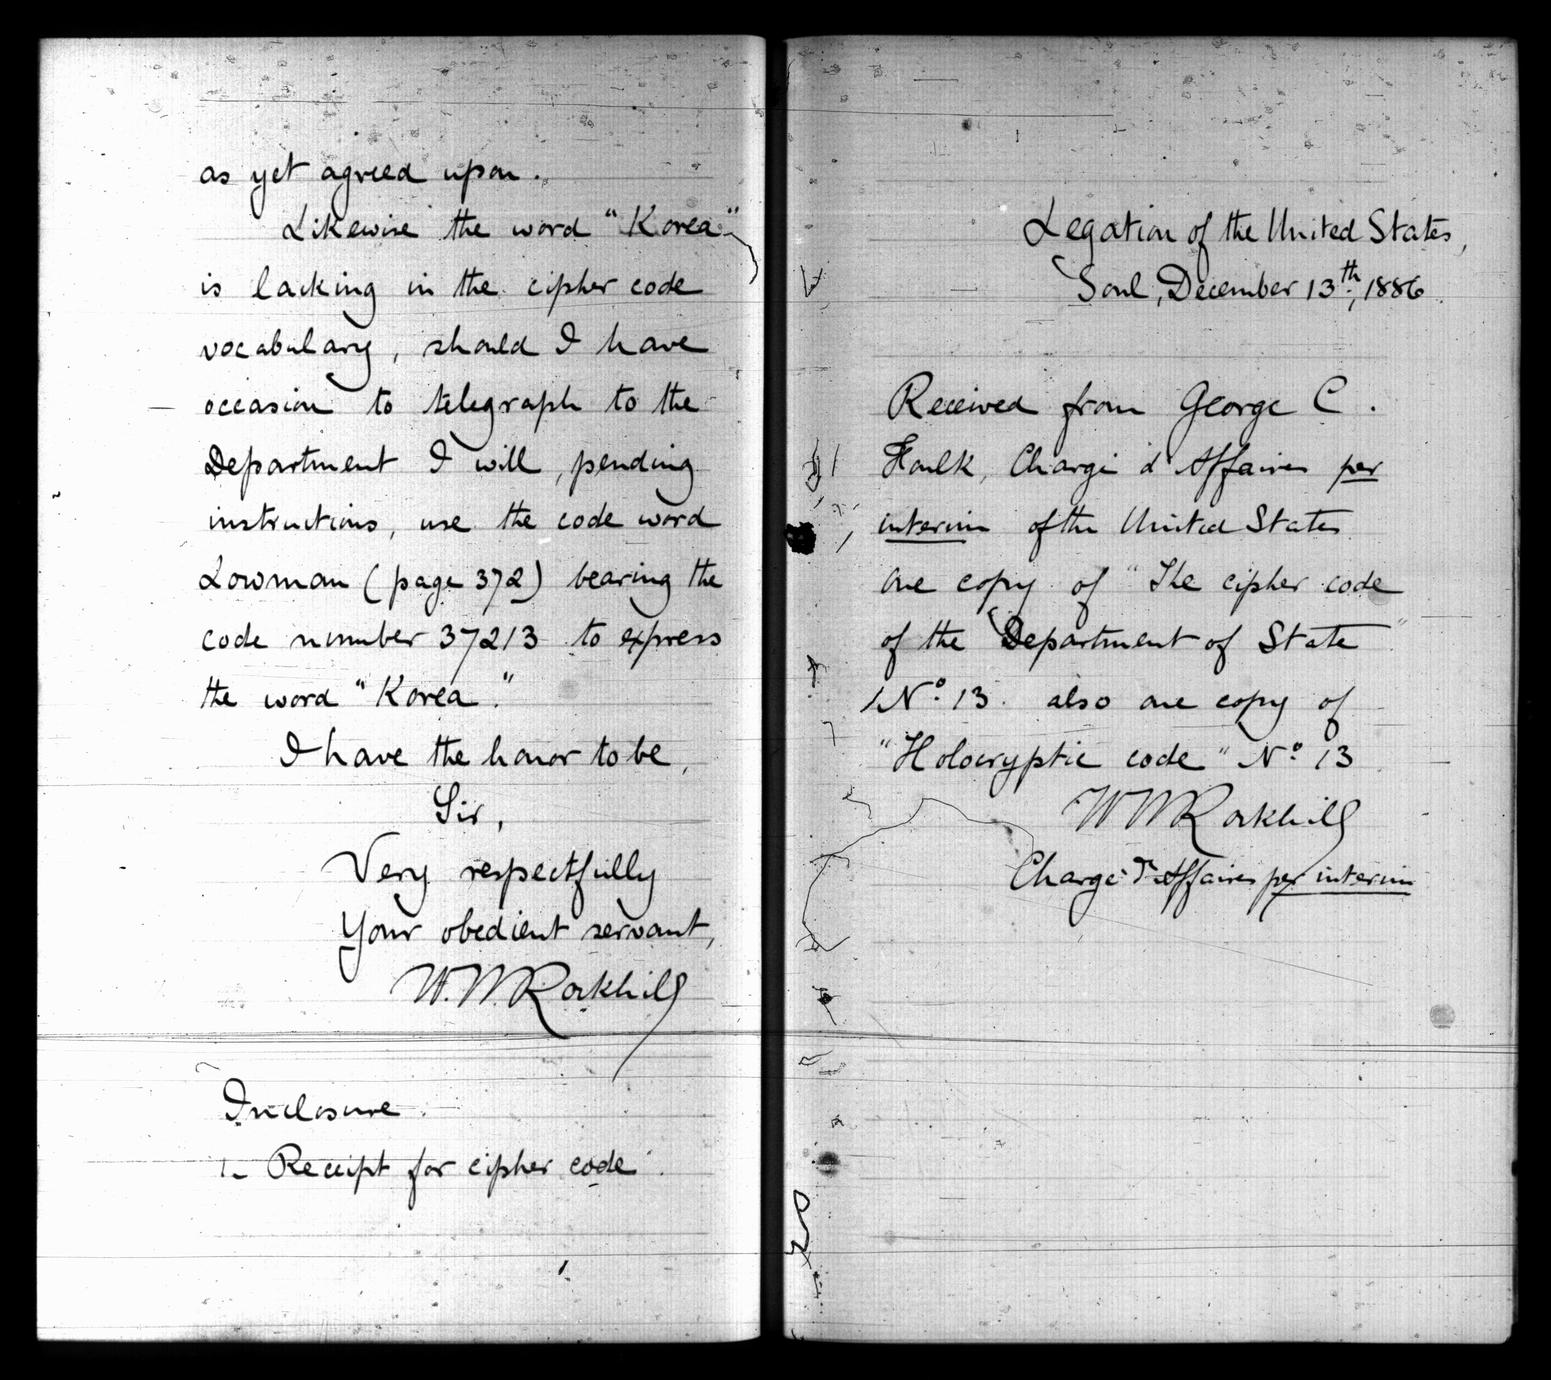 as yet agreed upon.
Likewise the word "Korea"
is lacking in the cipher code
vocabulary, should I have
occasion to telegraph to the
Department I will, pending
instructions, use the code word
Lowman (page 372) bearing the
code number 37213 to express
the word "Korea."
I have the honor to be,
Sir,
Very respectfully
Your obedient servant,
W. W. Rockhill
Inclosure.
1_ Receipt for cipher code.
Legation of the United States,
Soul, December 13th, 1886
Received from George C.
Foulk, Chargé d'Affaires per
interim of the United States
one copy of "The cipher code
of the Department of State"
No. 13. also one copy of
"Holocryptic code" No. 13
W W Rockhill
Chargé d'Affaires per interim